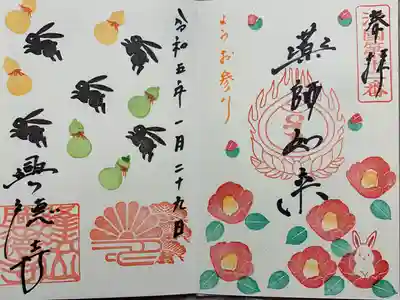 奉拝
薬師如来
ようお参り
令和五年一月二十九日
興徳寺